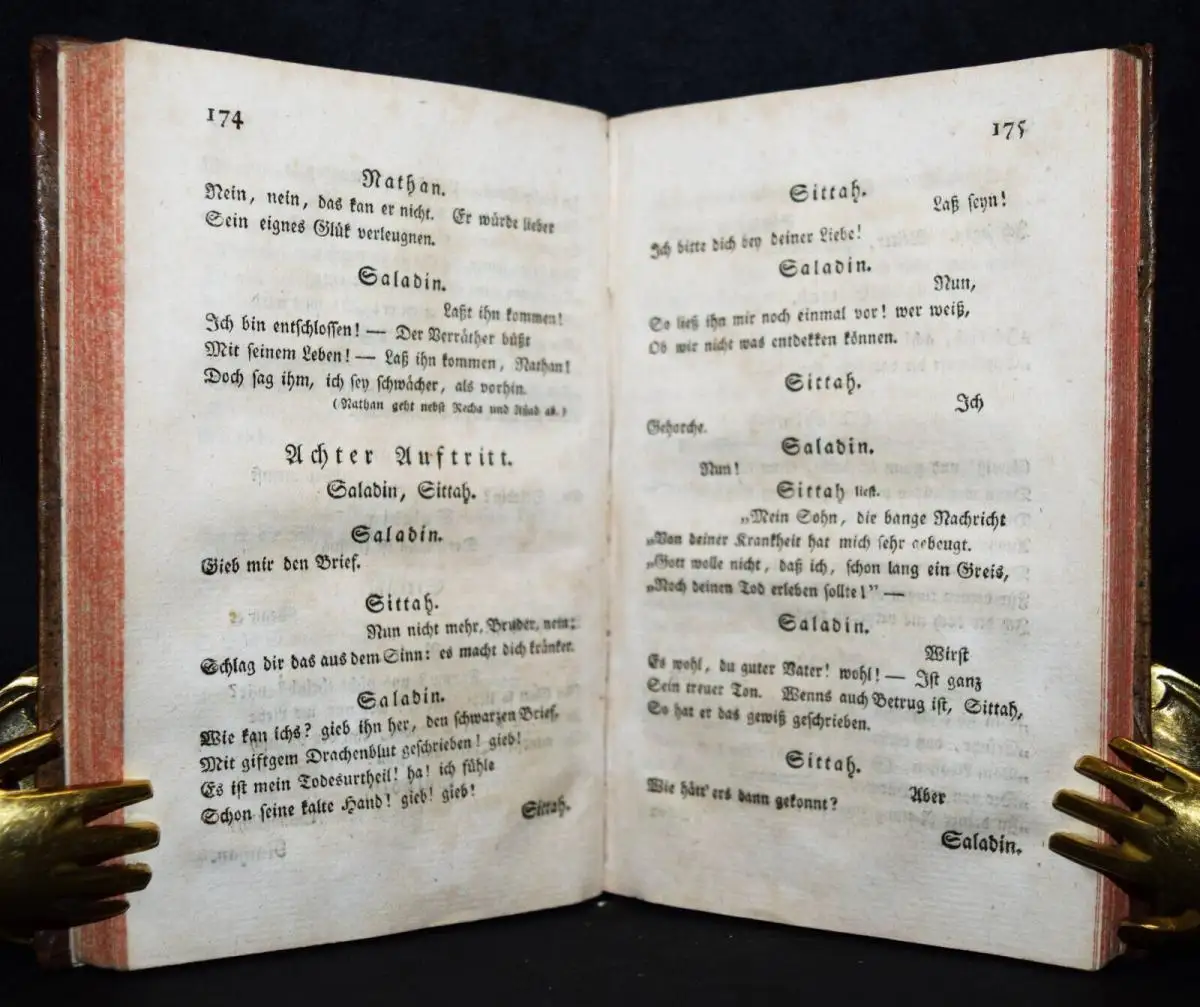 174
Nathan.
Nein, nein, das kan er nicht. Er würde lieber
Sein eignes Glük verleugnen.
Saladin.
Laßt ihn kommen!
Ich bin entschlossen! — Der Verräther büßt
Mit seinem Leben! — Laß ihn kommen, Nathan!
Doch sag ihm, ich sey schwächer, als vorhin.
(Nathan geht nebst Recha und Assad ab.)
Achter Auftritt.
Saladin, Sittah.
Saladin.
Gieb mir den Brief.
Sittah.
Nun nicht mehr, Bruder, nein;
Schlag dir das aus dem Sinn: es macht dich kränker.
Saladin.
Wie kan ichs? gieb ihn her, den schwarzen Brief,
Mit giftgem Drachenblut geschrieben! gieb!
Es ist mein Todesurtheil! ha! ich fühle
Schon seine kalte Hand! gieb! gieb!
Sittah.
175
Sittah.
Laß seyn!
Ich bitte dich bey deiner Liebe!
Saladin.
Nun,
So ließ ihn mir noch einmal vor! wer weiß,
Ob wir nicht was entdekken können.
Sittah.
Ich
Gehorche.
Saladin.
Nun!
Sittah liest.
„Mein Sohn, die bange Nachricht
„Von deiner Krankheit hat mich sehr gebeugt.
„Gott wolle nicht, daß ich, schon lang ein Greis,
„Noch deinen Tod erleben sollte!” —
Saladin.
Wirst
Es wohl, du guter Vater! wohl! — Ist ganz
Sein treuer Ton. Wenns auch Betrug ist, Sittah,
So hat er das gewiß geschrieben.
Sittah.
Aber
Wie hätt' ers dann gekonnt?
Saladin.